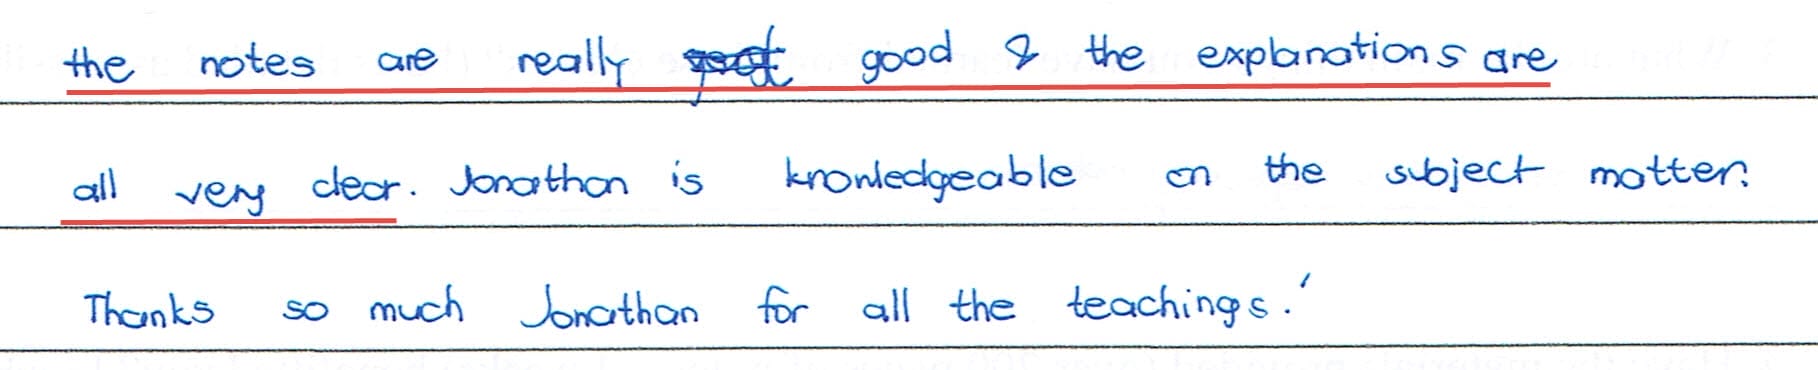 the notes are really good & the explanations are
all very clear. Jonathan is knowledgeable on the subject matter.
Thanks so much Jonathan for all the teachings!